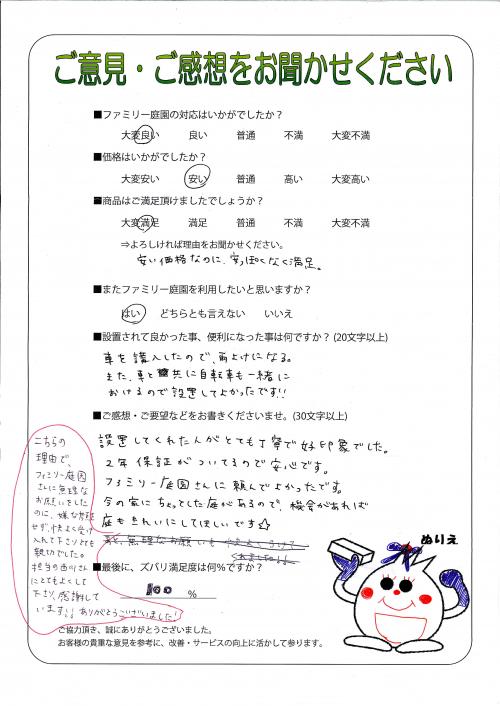 ご意見・ご感想をお聞かせください
■ファミリー庭園の対応はいかがでしたか？
大変良い 良い 普通 不満 大変不満
■価格はいかがでしたか？
大変安い 安い 普通 高い 大変高い
■商品はご満足頂けましたでしょうか？
大変満足 満足 普通 不満 大変不満
⇒よろしければ理由をお聞かせください。
安い価格なのに、安っぽくなく満足。
■またファミリー庭園を利用したいと思いますか？
はい どちらとも言えない いいえ
■設置されて良かった事、便利になった事は何ですか？(20文字以上)
車を購入したので、雨よけになる。
また、車と共に自転車も一緒に
おけるので設置してよかったです!!
■ご感想・ご要望などをお書きくださいませ。(30文字以上)
設置してくれた人がとても丁寧で好印象でした。
2年保証がついてるので安心です。
ファミリー庭園さんに頼んでよかったです。
今の家にちょっとした庭があるので、機会があれば
庭もきれいにしてほしいです☆
あと、無理なお願いも
■最後に、ズバリ満足度は何％ですか？
100 ％
こちらの
理由で、
ファミリー庭園
さんに無理な
お願いをした
のに、嫌な
せず、快よく受け
入れて下さりとても
親切でした。
担当の さん
にとてもよくして
下さり、感謝して
います!! ありがとうございました!
ぬりえ
ご協力頂き、誠にありがとうございました。
お客様の貴重な意見を参考に、改善・サービスの向上に活かして参ります。